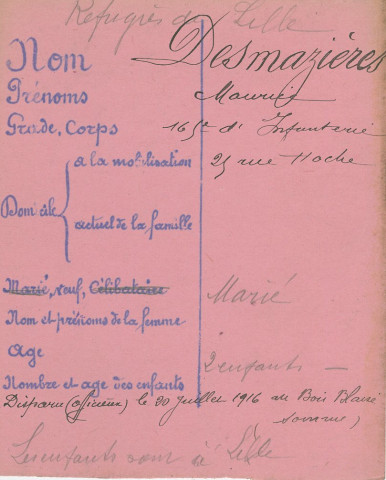 Réfugiés de Lille
Nom Desmazières
Prénoms Maurice
Grade, Corps 165e d'Infanterie
Domicile
à la mobilisation 25 rue Hoche
actuel de la famille
Marié, veuf, Célibataire Marié
Nom et prénoms de la femme
Age
2 enfants —
Nombre et age des enfants
Disparu (officieux) le 30 Juillet 1916 au Bois
Somme)
Les enfants sont à Lille